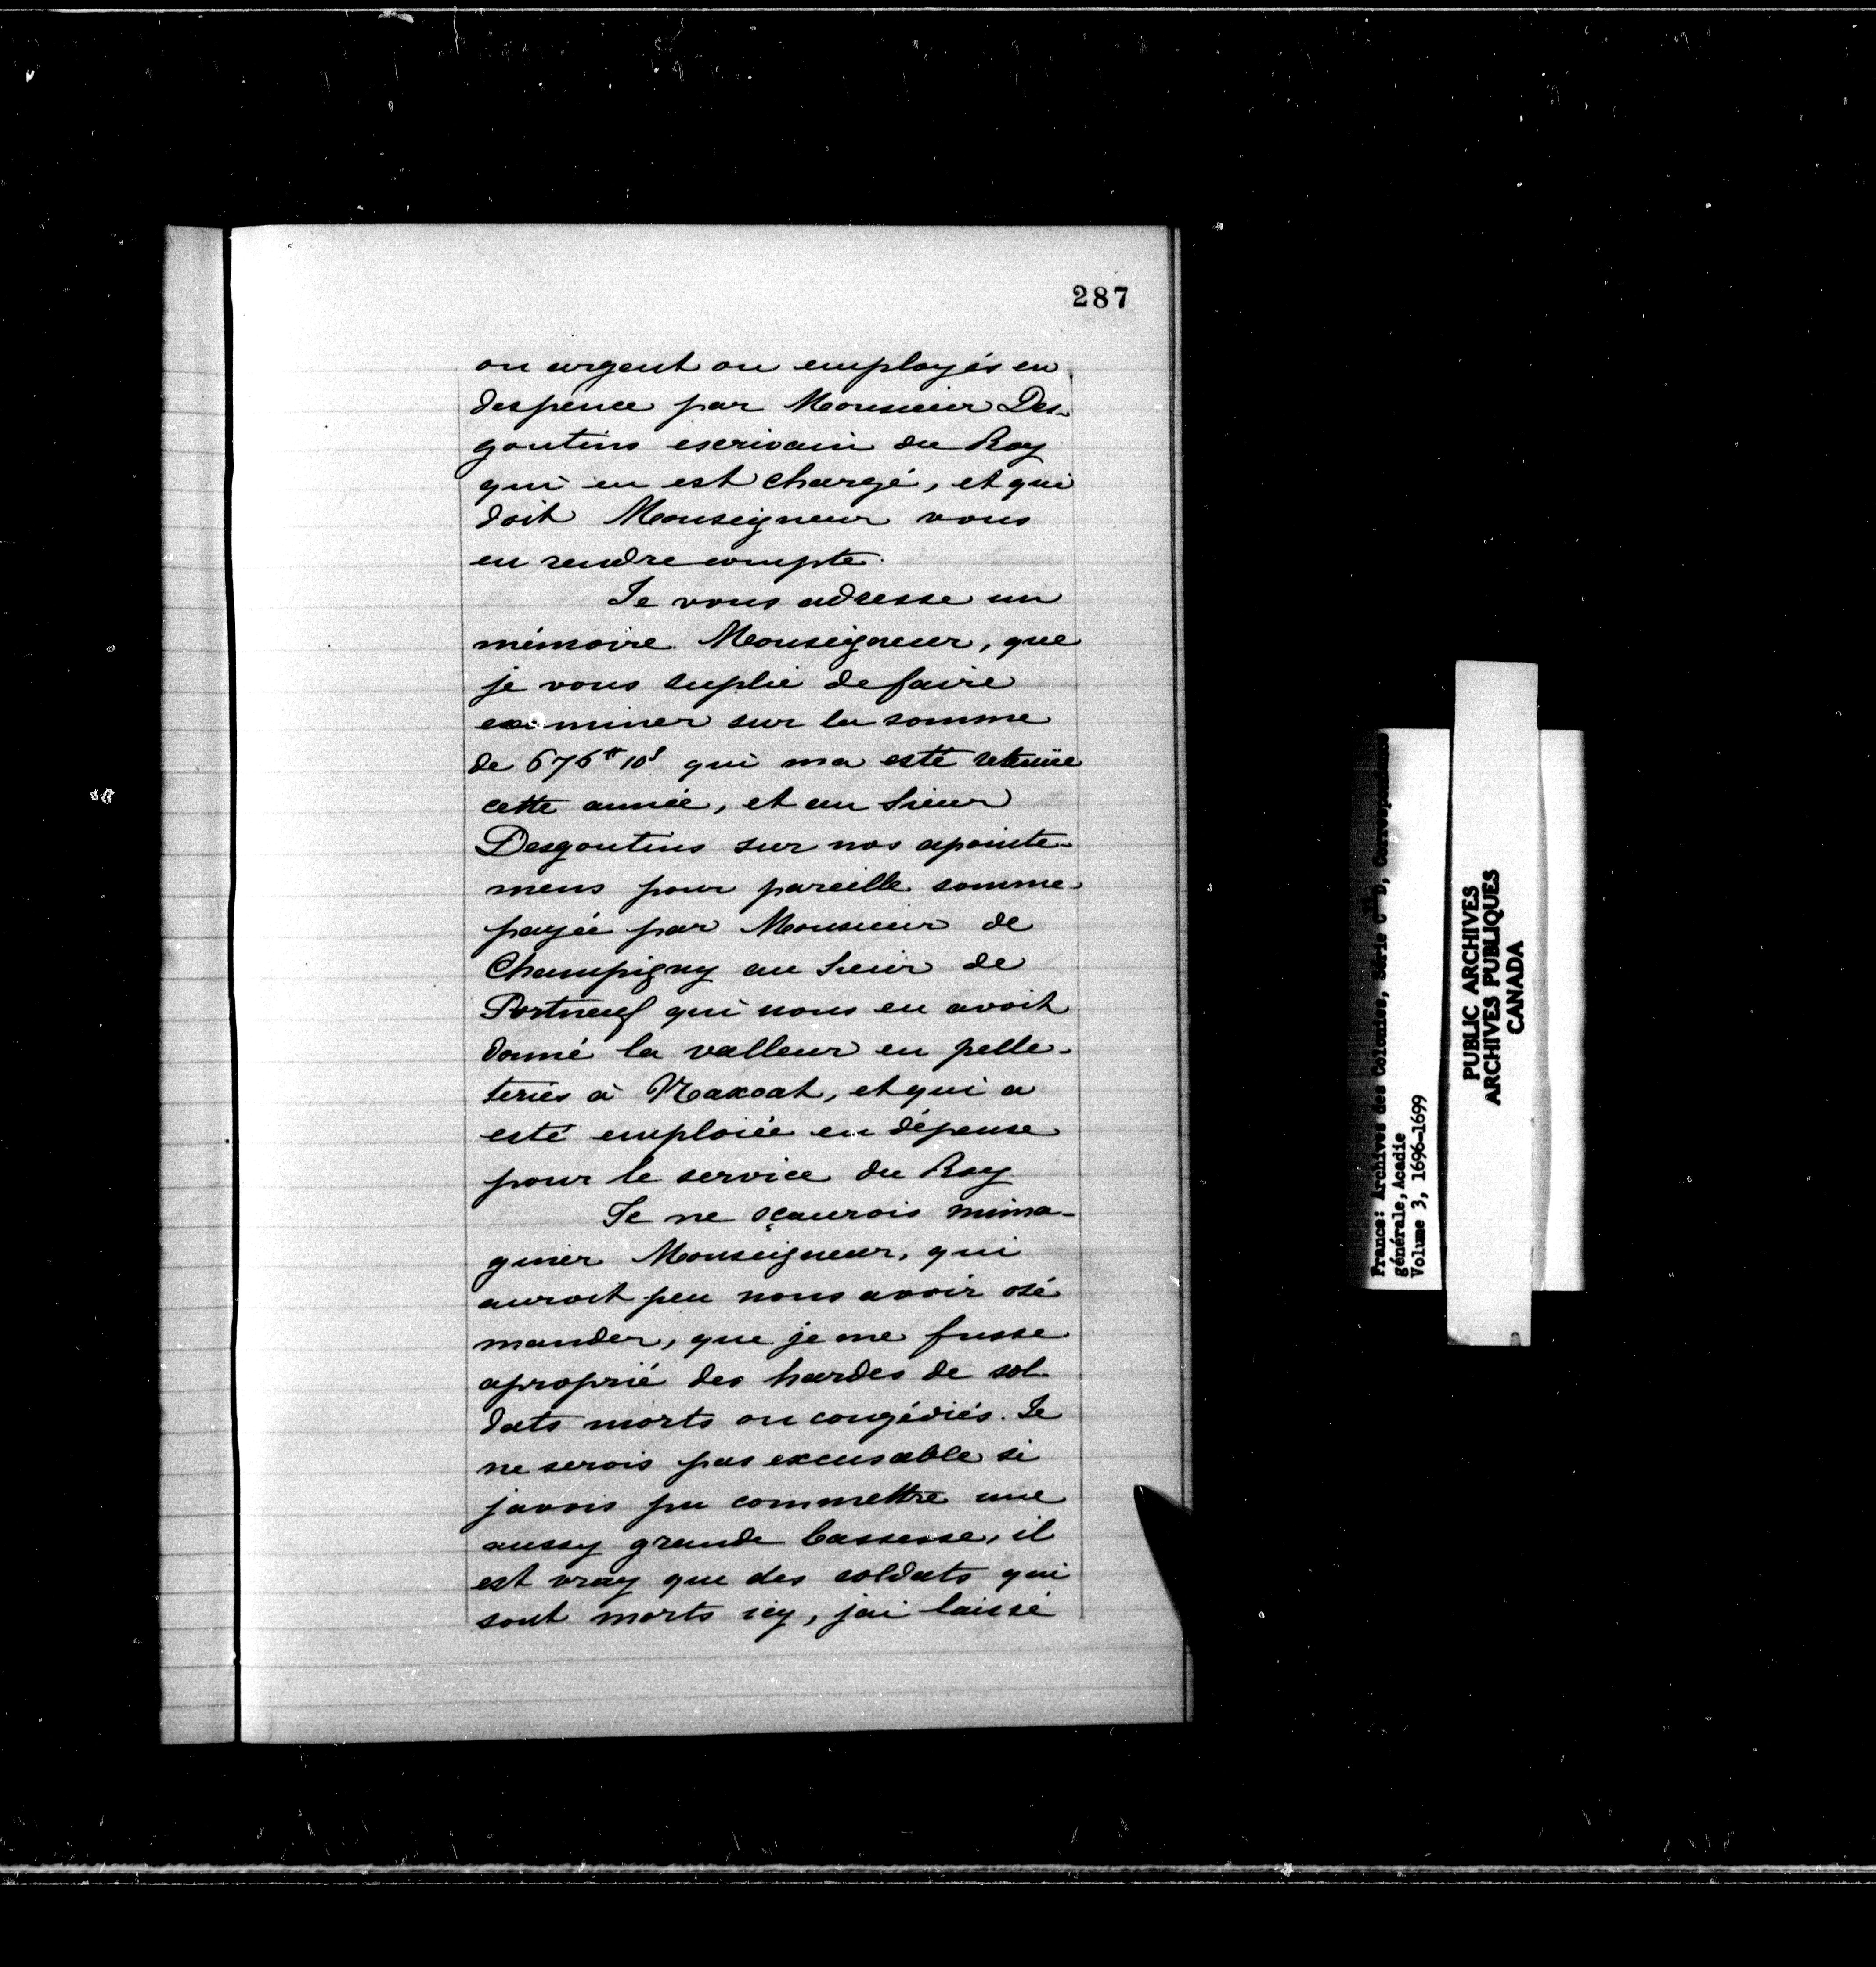 287
ou argent ou employés en
despence par Monsieur Des-
goutins escrivain du Roy
qui en est chargé, et qui
doit Monseigneur vous
en rendre compte.
Je vous adresse un
mémoire Monseigneur, que
je vous suplie de faire
examiner sur la somme
de 676# 10s qui ma esté retenüe
cette année, et au Sieur
Desgoutins sur nos apointe-
mens pour pareille somme
payée par Monsieur de
Champigny au Sieur de
Portneuf qui nous en avoit
donné la valleur en pelle-
teries à Naxoat, et qui a
esté emploiée en dépense
pour le service du Roy
Je ne sçaurois mima-
giner Monseigneur, qui
auroit peu nous avoir osé
mander, que je me fusse
aproprié des hardes de sol-
dats morts ou congédiés. Je
ne serois pas excusable si
javois pu commettre une
aussy grande bassesse, il
est vray que des soldats qui
sont morts icy, jai laissé
France: Archives des Colonies, Série C11 D, Correspondance
générale, Acadie
Volume 3, 1696-1699
PUBLIC ARCHIVES
ARCHIVES PUBLIQUES
CANADA